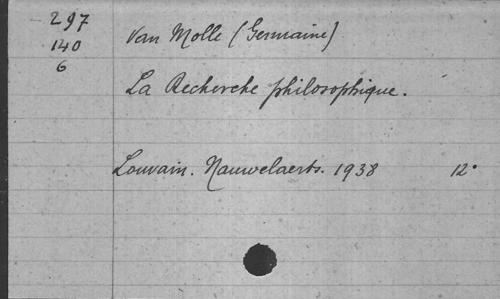 297
140
6
Van Molle (Germaine)
La Recherche philosophique.
Louvain. Nauwelaerts. 1938 12°